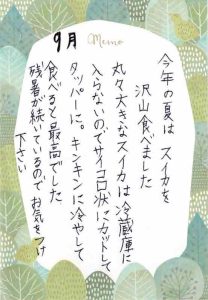 9月
Memo
今年の夏は スイカを
沢山食べました
丸々大きなスイカは冷蔵庫に
入らないのでサイコロ状にカットして
タッパーに。キンキンに冷やして
食べると最高でした
残暑が続いているのでお気をつけ
下さい